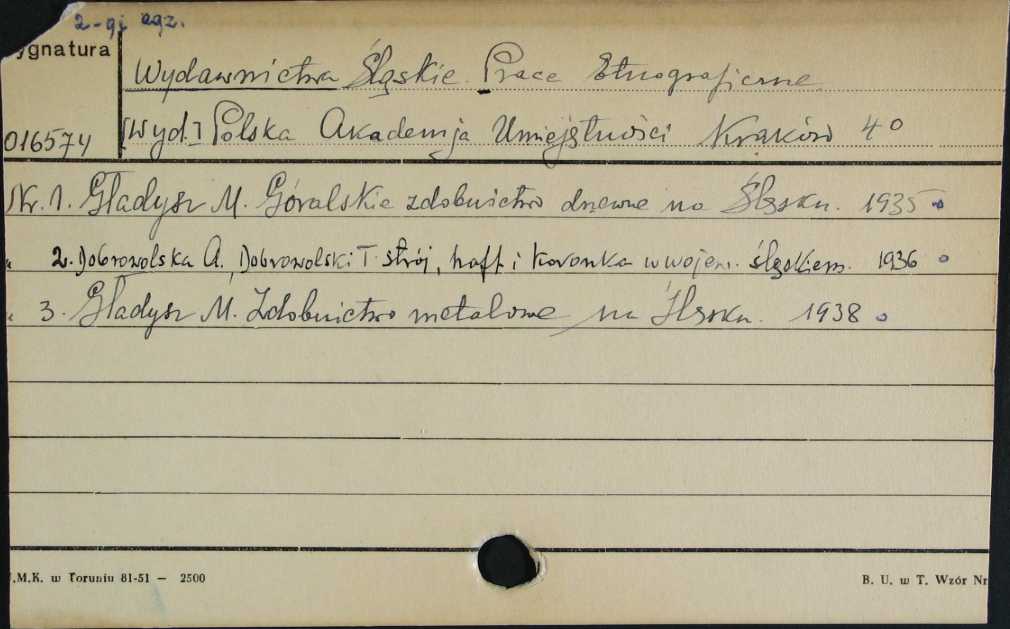 2-gi egz.
ygnatura
Wydawnictwa Śląskie. Prace Etnograficzne
016574
[Wyd.] Polska Akademja Umiejętności Kraków 4°
Nr. 1. Gładysz M. Góralskie zdobnictwo drzewne na Śląsku. 1935
" 2. Dobrowolska A., Dobrowolski T. Strój, haft i koronka w wojew. śląskiem. 1936
" 3. Gładysz M. Zdobnictwo metalowe na Śląsku. 1938
.M.K. w Toruniu 81-51 — 2500
B. U. w T. Wzór Nr